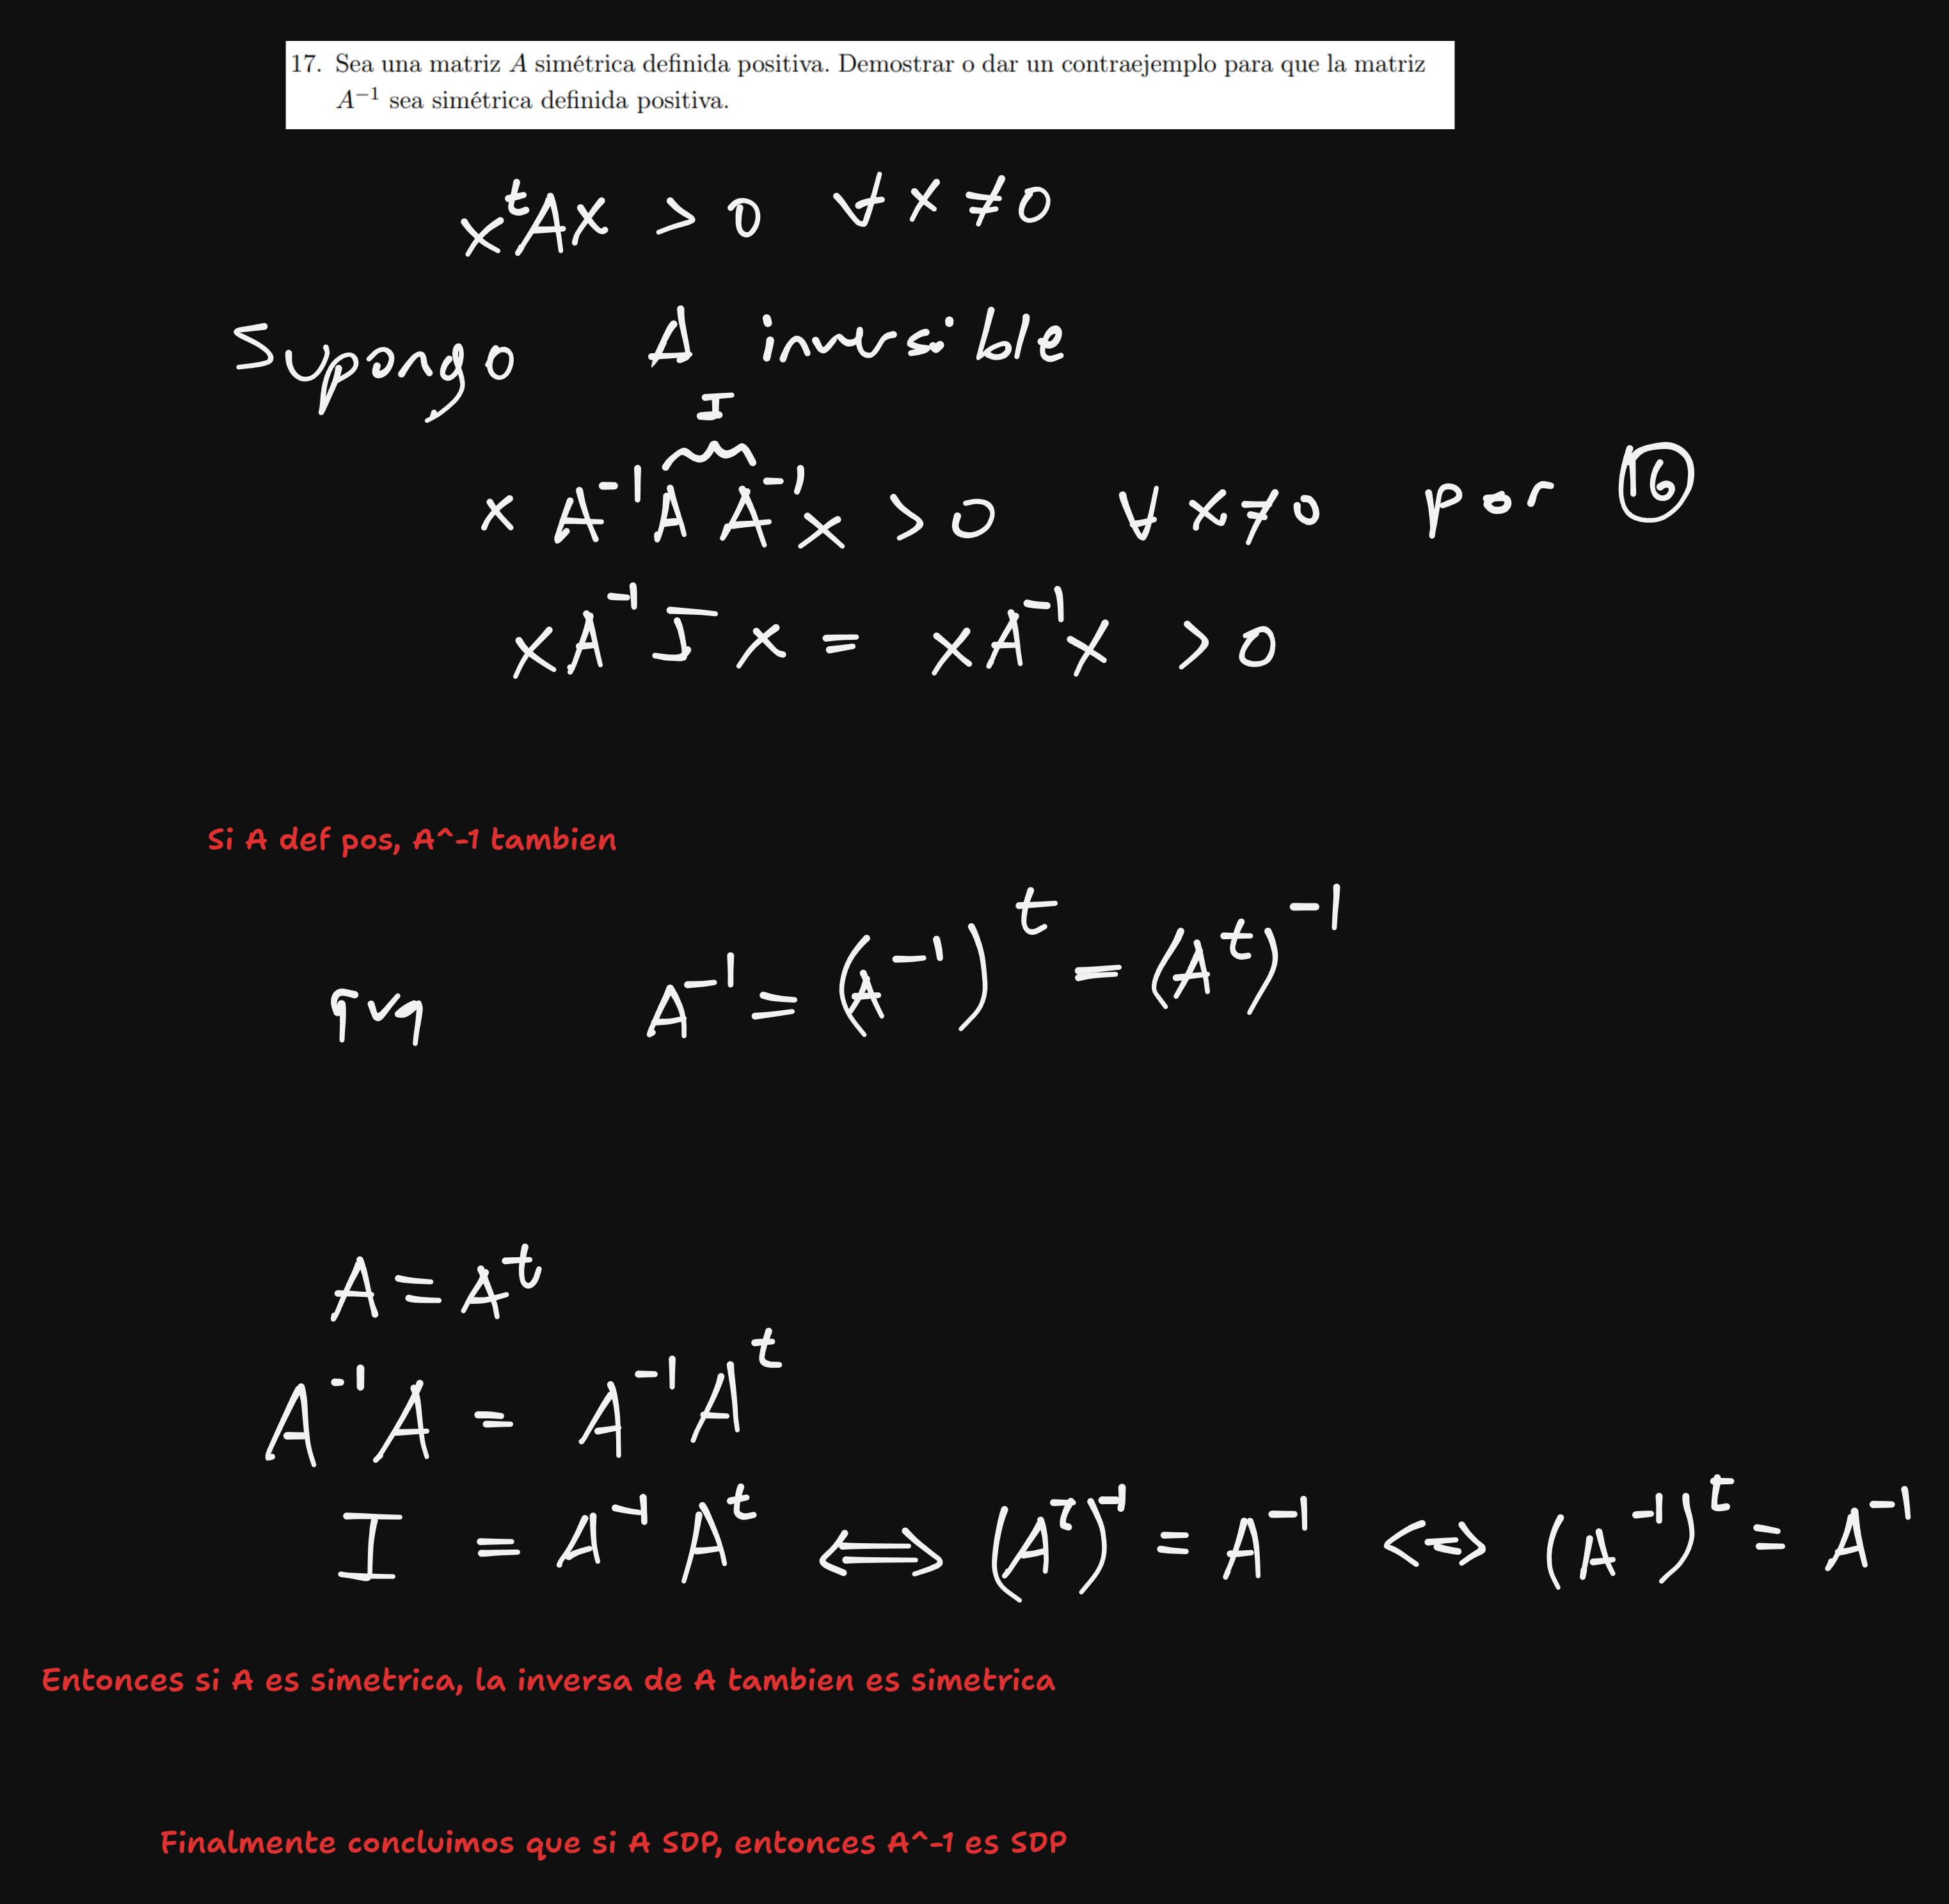 17. Sea una matriz A simétrica definida positiva. Demostrar o dar un contraejemplo para que la matriz
A⁻¹ sea simétrica definida positiva.
xᵗAx > 0 ∀ x ≠ 0
Supongo A inversible
I
x A⁻¹ A A⁻¹ x > 0 ∀ x ≠ 0 por ⑯
x A⁻¹ I x = x A⁻¹ x > 0
Si A def pos, A^-1 tambien
qvq A⁻¹ = (A⁻¹)ᵗ = (Aᵗ)⁻¹
A = Aᵗ
A⁻¹ A = A⁻¹ Aᵗ
I = A⁻¹ Aᵗ ⟺ (Aᵗ)⁻¹ = A⁻¹ ⟺ (A⁻¹)ᵗ = A⁻¹
Entonces si A es simetrica, la inversa de A tambien es simetrica
Finalmente concluimos que si A SDP, entonces A^-1 es SDP